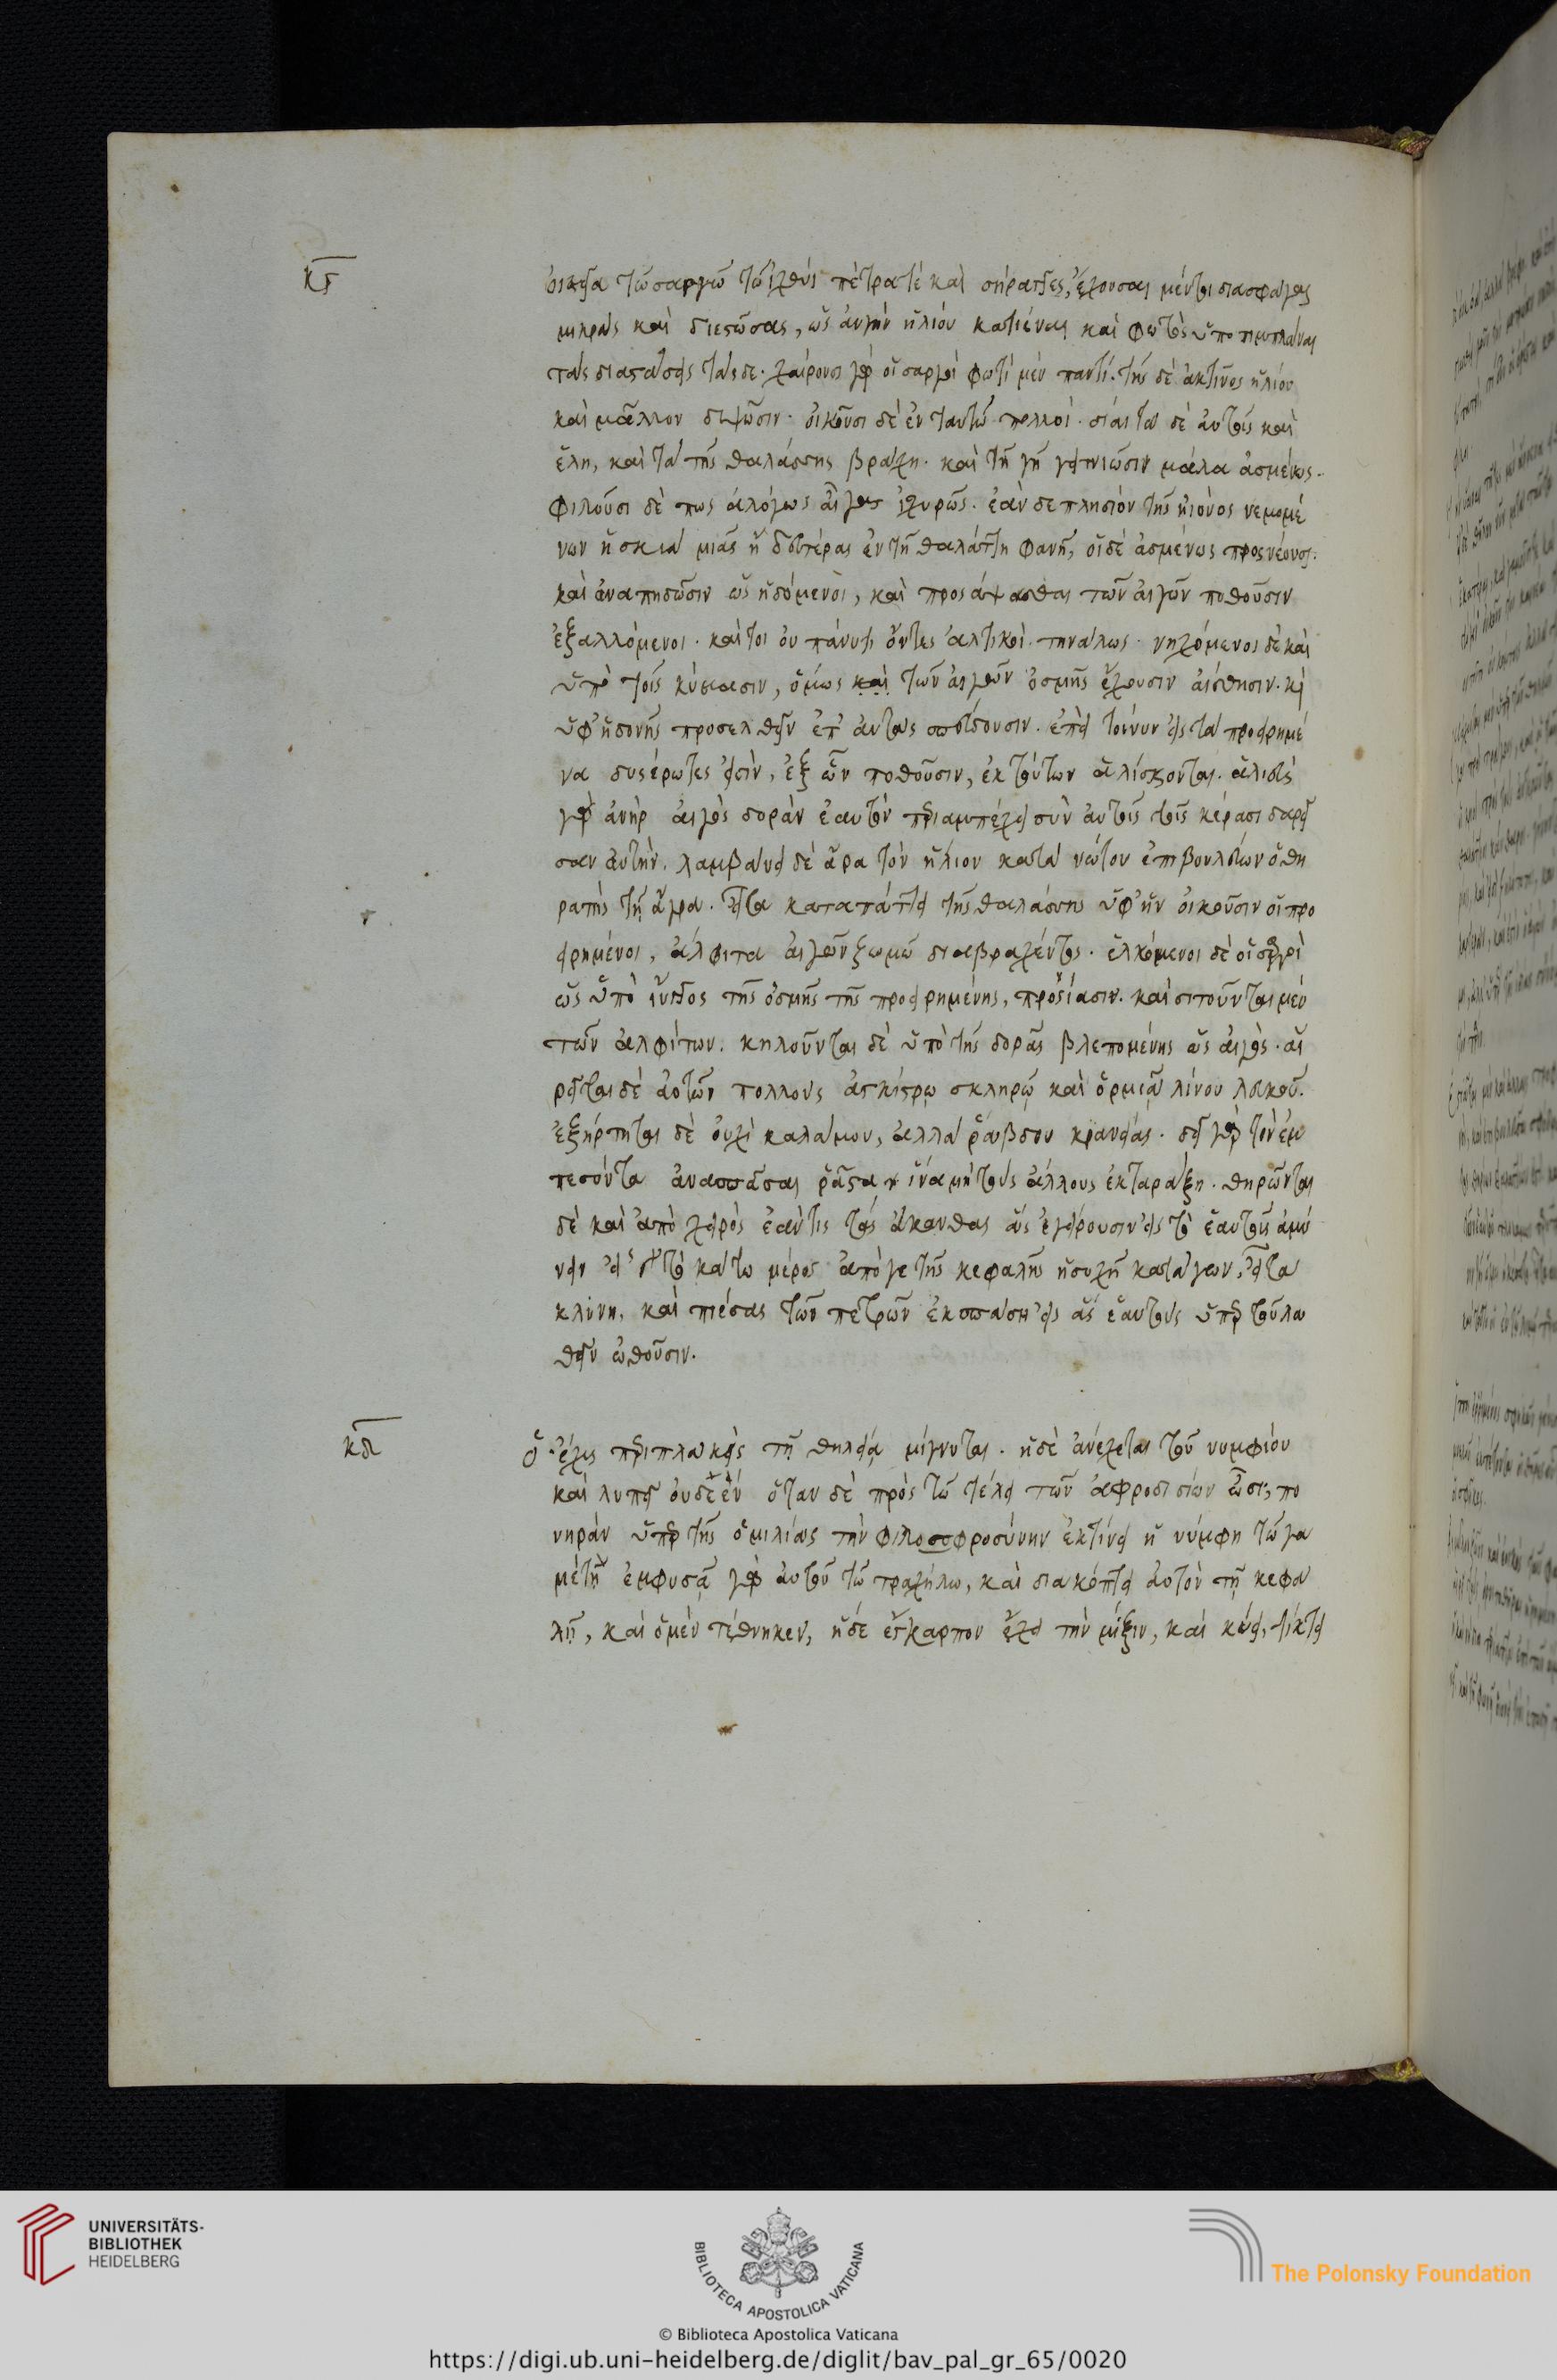 κγ
οἰκεῖα τῶ σαργῶ τῶ ἰχθύι πέτρα τὲ καὶ σήραγγες, ἔχουσαι μέντοι διασφάγας
μικρὰς καὶ διεστώσας, ὡς αὐγὴν ἡλίου κατιέναι καὶ φωτὸς ὑποπιμπλάναι
τὰς διαστάσεις τάσδε. χαίρουσι γὰρ οἱ σαργοὶ φωτὶ μὲν παντί. τῆς δὲ ἀκτῖνος ἡλίου
καὶ μᾶλλον διψῶσιν. οἰκοῦσι δὲ ἐν ταυτῶ πολλοί. δίαιτα δὲ αὐτοῖς καὶ
ἕλη, καὶ τὰ τῆς θαλάσσης βράχη. καὶ τῆ γῆ γειτνιῶσιν μάλα ἀσμένως.
Φιλοῦσι δὲ πως ἀλόγως αἶγας ἰσχυρῶς. ἐὰν δὲ πλησίον τῆς ἠιόνος νεμομέ
νων ἡ σκιὰ μιᾶς ἢ δευτέρας ἐν τῆ θαλάττη φανῆ, οἱ δὲ ἀσμένως προσνέουσι.
καὶ ἀναπηδῶσιν ὡς ἡδόμενοι, καὶ προσάψασθαι τῶν αἰγῶν ποθοῦσιν
ἐξαλλόμενοι. καίτοι οὐ πάνυ τι ὄντες ἁλτικοὶ τηνάλως. νηχόμενοι δὲ καὶ
ὑπὸ τοῖς κύμασιν, ὅμως καὶ τῶν αἰγῶν ὀσμῆς ἔχουσιν αἴσθησιν. καὶ
ὑφ' ἡδονῆς προσελθεῖν ἐπ' αὐτὰς σπεύδουσιν. ἐπεὶ τοίνυν εἰς τὰ προειρημέ
να δυσέρωτες εἰσὶν, ἐξ ὧν ποθοῦσιν, ἐκ τούτων ἁλίσκονται. ἁλιεὺς
γὰρ ἀνὴρ αἰγὸς δορὰν ἑαυτὸν περιαμπέχει σὺν αὐτοῖς τοῖς κέρασι δαρεῖ
σαν αὐτήν. λαμβάνει δὲ ἄρα τὸν ἥλιον κατὰ νώτου ἐπιβουλεύων ὁ θη
ρατὴς τῆ ἄγρα. εἶτα καταπάττει τῆς θαλάσσης ὑφ' ἣν οἰκοῦσιν οἱ προ
ειρημένοι, ἄλφιτα αἰγῶν ζωμῶ διαβραχέντα. ἑλκόμενοι δὲ οἱ σαργοὶ
ὡς ὑπὸ ἴυγγος τῆς ὀσμῆς τῆς προειρημένης, προσίασιν. καὶ σιτοῦνται μὲν
τῶν ἀλφίτων. κηλοῦνται δὲ ὑπὸ τῆς δορᾶς βλεπομένης ὡς αἰγὸς. αἱ
ρεῖται δὲ αὐτῶν πολλοὺς ἀγκίστρῳ σκληρῷ καὶ ὁρμιᾷ λίνου λευκοῦ.
ἐξήρτηται δὲ οὐχὶ καλάμου, ἀλλὰ ῥάβδου κρανείας. δεῖ γὰρ τὸν ἐμ
πεσόντα ἀνασπᾶσαι ῥᾷστα ἵνα μὴ τοὺς ἄλλους ἐκταράξη. θηρῶνται
δὲ καὶ ἀπὸ χειρὸς ἐάν τις τὰς ἀκάνθας ἃς ἐγείρουσιν εἰς τὸ ἑαυτοῖς ἀμύ
νειν εἰς τὸ κάτω μέρος ἀπό γε τῆς κεφαλῆς ἡσυχῆ κατάγων, εἶτα
κλίνη, καὶ πιέσας τῶν πετρῶν ἐκσπάση εἰς ἃς ἑαυτοὺς ὑπὲρ τοῦ λα
θεῖν ὠθοῦσιν.
κδ
ὁ ἔχις περιπλακεὶς τῇ θηλείᾳ μίγνυται. ἡ δὲ ἀνέχεται τοῦ νυμφίου
καὶ λυπεῖ οὐδὲ ἕν ὅταν δὲ πρὸς τῶ τέλει τῶν ἀφροδισίων ὦσι, πο
νηρὰν ὑπὲρ τῆς ὁμιλίας τὴν φιλοσοφροσύνην ἐκτίνει ἡ νύμφη τῶ γα
μέτῃ ἐμφυσᾷ γὰρ αὐτοῦ τῶ τραχήλω, καὶ διακόπτει αὐτὸν τῇ κεφα
λῇ, καὶ ὁ μὲν τέθνηκεν, ἡ δὲ ἔγκαρπον ἔχει τὴν μίξιν, καὶ κύει, τίκτει
UNIVERSITÄTS-
BIBLIOTHEK
HEIDELBERG
BIBLIOTECA APOSTOLICA VATICANA
The Polonsky Foundation
© Biblioteca Apostolica Vaticana
https://digi.ub.uni-heidelberg.de/diglit/bav_pal_gr_65/0020